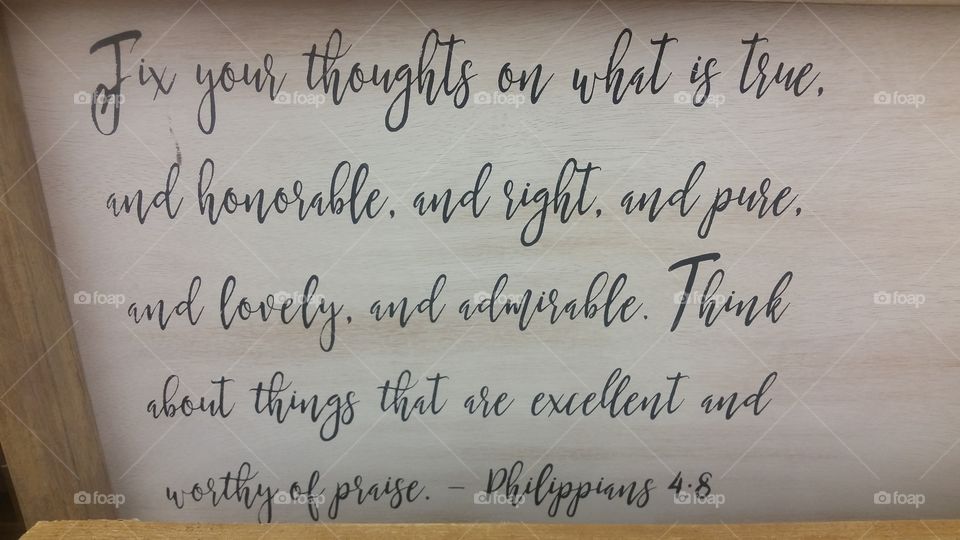 Fix your thoughts on what is true,
and honorable, and right, and pure,
and lovely, and admirable. Think
about things that are excellent and
worthy of praise. – Philippians 4:8
foap foap foap foap foap
foap foap foap foap foap
foap foap foap foap foap